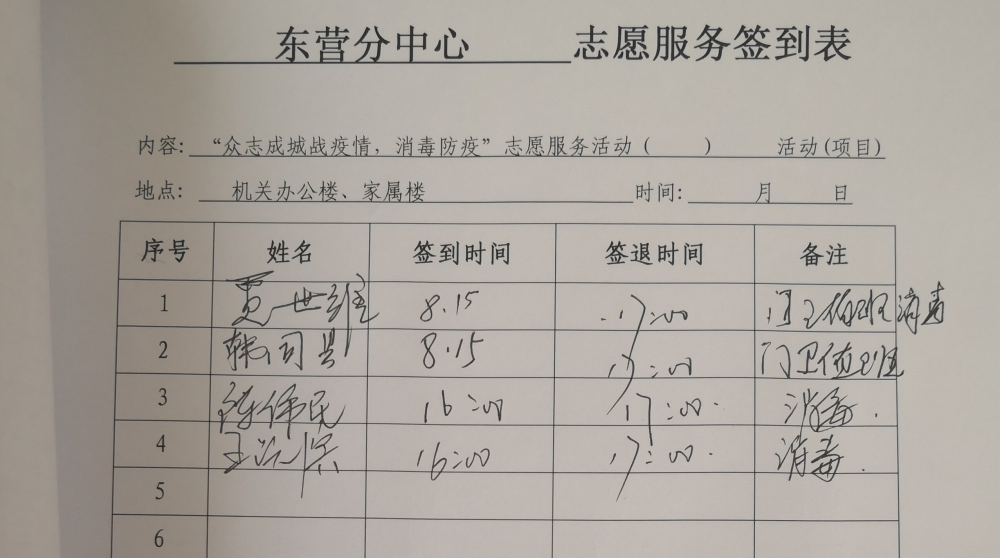 东营分中心 志愿服务签到表
内容: “众志成城战疫情，消毒防疫”志愿服务活动（ ） 活动(项目)
地点: 机关办公楼、家属楼 时间: 月 日
序号 姓名 签到时间 签退时间 备注
1 贾世维 8.15 17:00 门卫值班 消毒
2 韩同 8.15 17:00 门卫值班
3 陈伟民 16:00 17:00 消毒.
4 王 16:00 17:00 消毒.
5
6